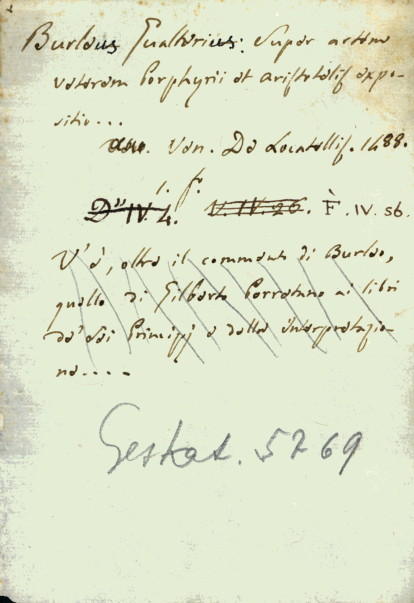 Burleus Gualterius: Super artem
veterem Porphyrii et Aristotelis expo-
sitio...
Ven. De Locatellis. 1488.
1. f.
D" IV. 4. V. IV. 26. F. IV. 56.
V'è, oltre il commento di Burleo,
quello di Gilberto Porretano ai libri
de' Sei Principj e della interpretazio-
ne....
Geskat. 5769